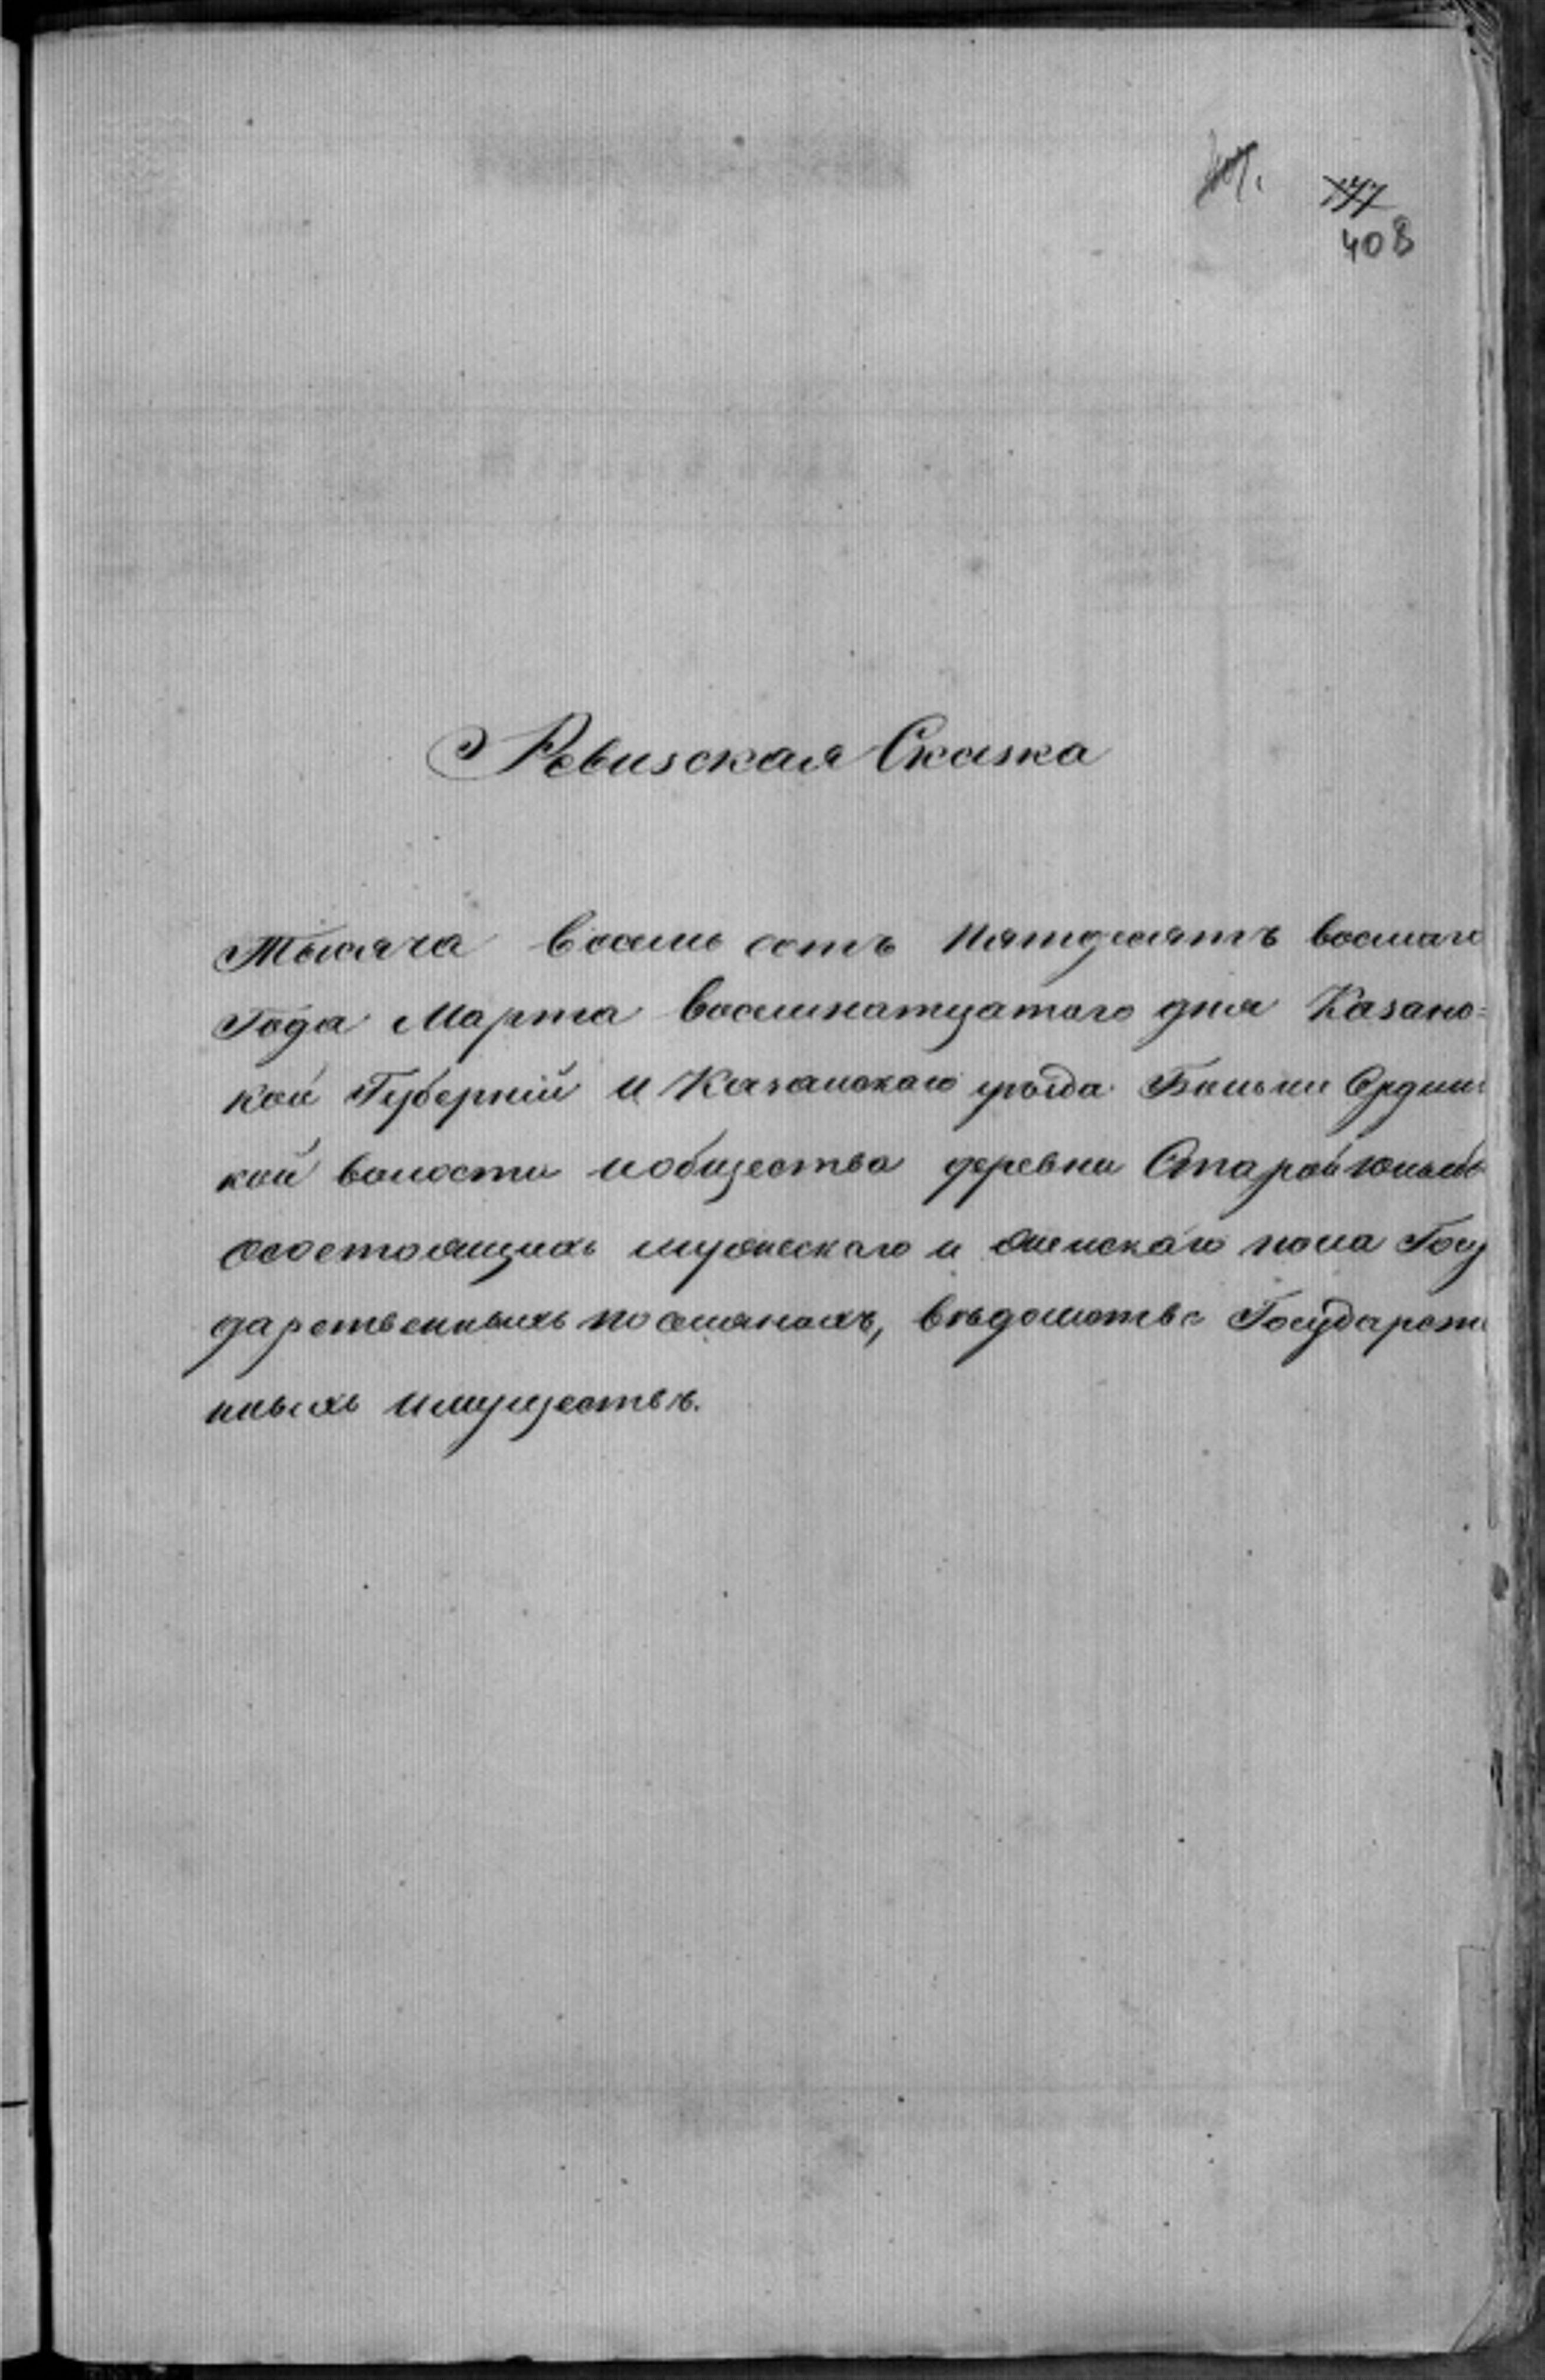 408
Ревизская Сказка
Тысяча восемь сотъ пятдесятъ восмаго
Года Марта восемнатцатаго дня Казанс=
кой Губерніи и Казанскаго уѣзда Больши
кой волости иобщества деревни Старой
осостоящихъ мужескаго и женскаго пола Госу
дарственныхъ поселянахъ, вѣдомства Государств
нныхъ имуществъ.